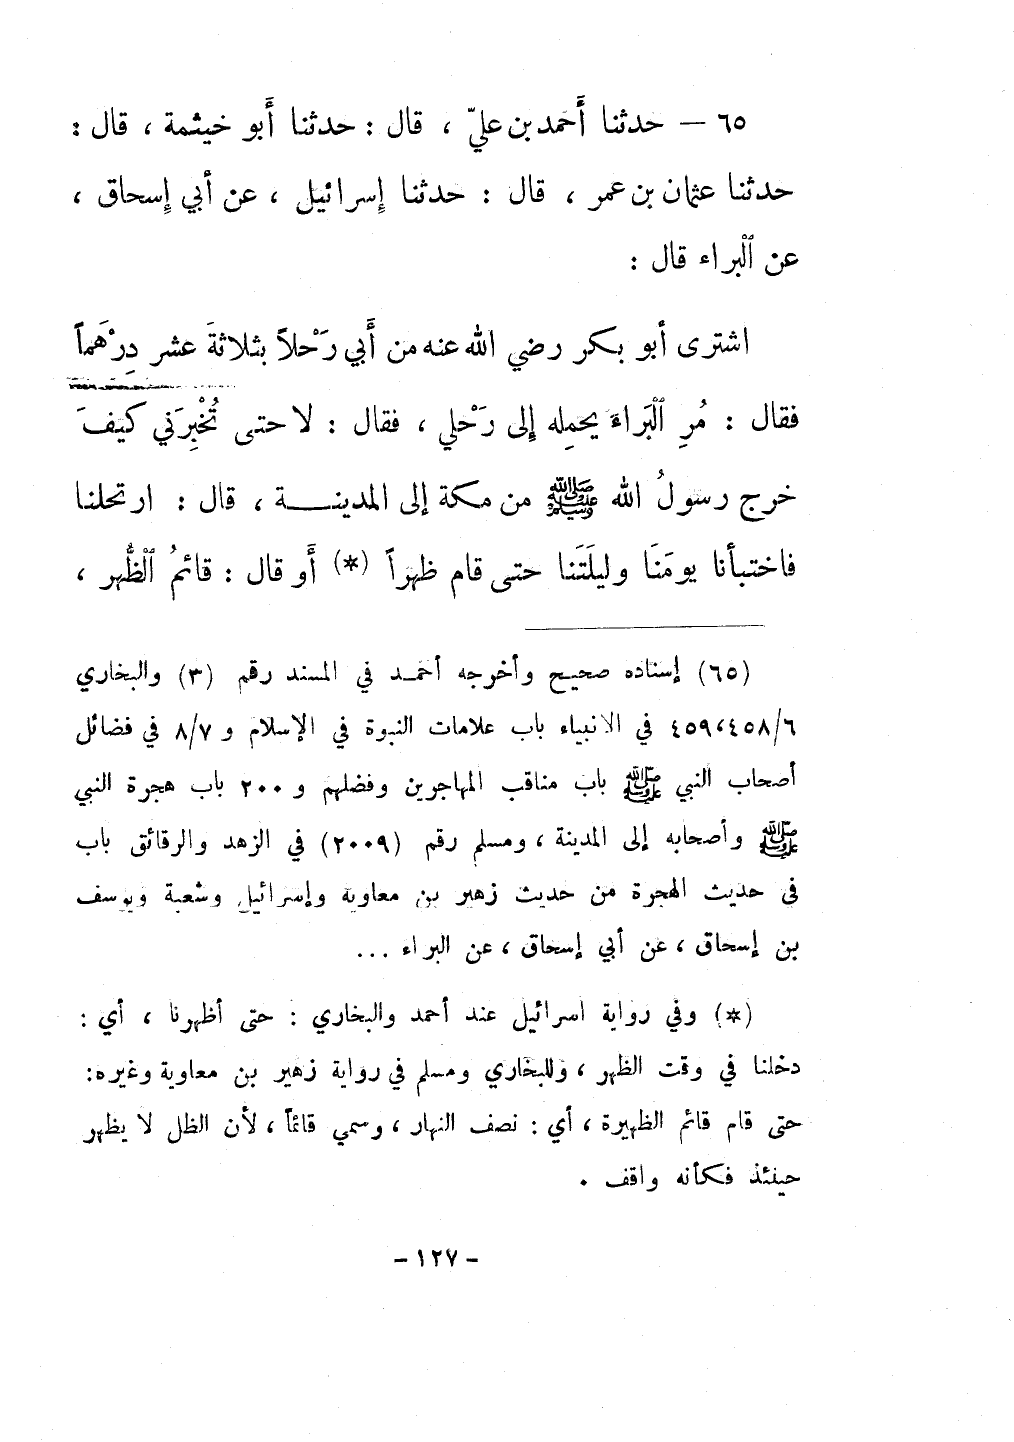 ٦٥ — حدثنا أَحمد بن عليّ ، قال : حدثنا أَبو خيثمة ، قال :
حدثنا عثمان بن عمر ، قال : حدثنا إِسرائيل ، عن أبي إِسحاق ،
عن ٱلْبراء قال :
اشترى أبو بكر رضي الله عنه من أَبي رَحْلاً بثلاثةَ عشر دِرْهَماً
فقال : مُرِ ٱلْبَراءَ يحمِله إِلى رَحْلي ، فقال : لا حتى تُخْبِرَني كيفَ
خرج رسولُ الله ﷺ من مكة إلى المدينـــــة ، قال : ارتحلنا
فاختبأنا يومَنَا وليلَتَنا حتى قام ظهراً (*) أَو قال : قائمُ ٱلْظُّهر ،
(٦٥) إسناده صحيح وأخرجه أحمـد في المسند رقم (٣) والبخاري
٤٥٩،٤٥٨/٦ في الانبياء باب علامات النبوة في الإسلام و ٨/٧ في فضائل
أصحاب النبي ﷺ باب مناقب المهاجرين وفضلهم و ٢٠٠ باب هجرة النبي
ﷺ وأصحابه إلى المدينة ، ومسلم رقم (٢٠٠٩) في الزهد والرقائق باب
في حديث الهجرة من حديث زهير بن معاوية وإسرائيل وشعبة ويوسف
بن إسحاق ، عن أبي إسحاق ، عن البراء ...
(*) وفي رواية اسرائيل عند أحمد والبخاري : حتى أظهرنا ، أي :
دخلنا في وقت الظهر ، وللبخاري ومسلم في رواية زهير بن معاوية وغيره:
حتى قام قائم الظهيرة ، أي : نصف النهار ، وسمي قائماً ، لأن الظل لا يظهر
حينئذ فكأنه واقف .
- ١٢٧ -